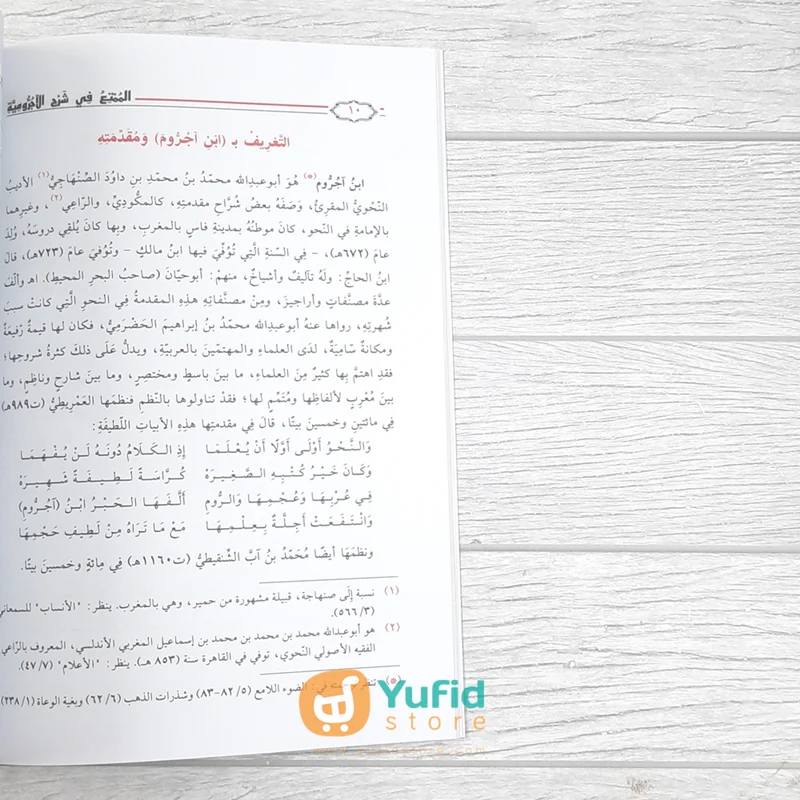 الممتع في شرح الآجرومية
- ١٠
التَّعْرِيفُ بـ (ابْنِ آجُرُّومَ) وَمُقَدِّمَتِهِ
ابنُ آجُرُّوم(*) هُوَ أبوعبدِالله محمدُ بنُ محمدِ بنِ داوُدَ الصِّنْهاجِيُّ(١) الأديبُ
النَّحْويُّ المقرِئُ، وَصَفَهُ بعضُ شُرَّاحِ مقدمتِهِ، كالمكُودِيِّ، والرَّاعِي(٢)، وغيرِهما
بالإمامةِ في النَّحو، كانَ موطنُهُ بمدينةِ فاسٍ بالمغربِ، وبِها كانَ يُلقِي دروسَهُ، وُلِدَ
عامَ (٦٧٢هـ)، - في السّنةِ الَّتي تُوُفِّيَ فيها ابنُ مالكٍ - وتُوُفِّيَ عامَ (٧٢٣هـ)، قالَ
ابنُ الحاجِّ: ولَهُ تآليفُ وأشياخٌ، منهمْ: أبوحيّانَ (صاحبُ البحرِ المحيطِ). اهـ وألَّفَ
عدَّةَ مصنَّفاتٍ وأراجيزَ، ومِنْ مصنَّفاتِهِ هذِهِ المقدمةُ في النحوِ الَّتي كانَتْ سببَ
شُهرتِهِ، رواها عنهُ أبوعبدِالله محمدُ بنُ إبراهيمَ الحَضْرَمِيُّ، فكان لها قيمةٌ رَفيعَةٌ
ومكانةٌ سَامِيَةٌ، لدَى العلماءِ والمهتمِّينَ بالعربيّةِ، ويدلُّ عَلَى ذلكَ كثرةُ شروحِها؛
فقدِ اهتمَّ بِها كثيرٌ مِنَ العلماءِ، ما بينَ باسطٍ ومختصِرٍ، وما بينَ شارحٍ وناظِمٍ، وما
بينَ مُعْرِبٍ لألفاظِها ومُتَمِّمٍ لها؛ فقدْ تناولوها بالنَّظمِ فنظمَها العَمْرِيطِيُّ (ت٩٨٩هـ)
فِي مائتينِ وخمسينَ بيتًا، قالَ فِي مقدمتِها هذِهِ الأبياتِ اللَّطيفَةَ:
وَالنَّحْوُ أَوْلَى أَوَّلًا أَنْ يُعْلَمَا إِذِ الْكَلَامُ دُونَهُ لَنْ يُفْهَمَا
وَكَانَ خَيْرُ كُتْبِهِ الصَّغِيرَهْ كُرَّاسَةً لَطِيفَةً شَهِيرَهْ
فِي عُرْبِهَا وَعُجْمِهَا وَالرُّومِ أَلَّفَهَا الحَبْرُ ابْنُ (آجُرُّومِ)
وَانْتَفَعَتْ أَجِلَّةٌ بِعِلْمِهَا مَعْ مَا تَرَاهُ مِنْ لَطِيفِ حَجْمِهَا
ونظمَهَا أيضًا مُحَمَّدُ بنُ آبَّ الشِّنقِيطيُّ (ت١١٦٠هـ) فِي مِائةٍ وخمسينَ بيتًا.
(١) نسبة إلَى صنهاجة، قبيلة مشهورة من حمير، وهي بالمغرب. ينظر: "الأنساب" للسمعاني
(٥٦٦/٣).
(٢) هو أبوعبدالله محمد بن محمد بن محمد بن إسماعيل المغربي الأندلسي، المعروف بالرَّاعي
الفقيه الأصولي النَّحوي، توفي في القاهرة سنة (٨٥٣ هـ). ينظر: "الأعلام" (٤٧/٧).
(*) تنظر في: الضوء اللامع (٨٢/٥-٨٣) وشذرات الذهب (٦٢/٦) وبغية الوعاة (٢٣٨/١)
Yufid
store